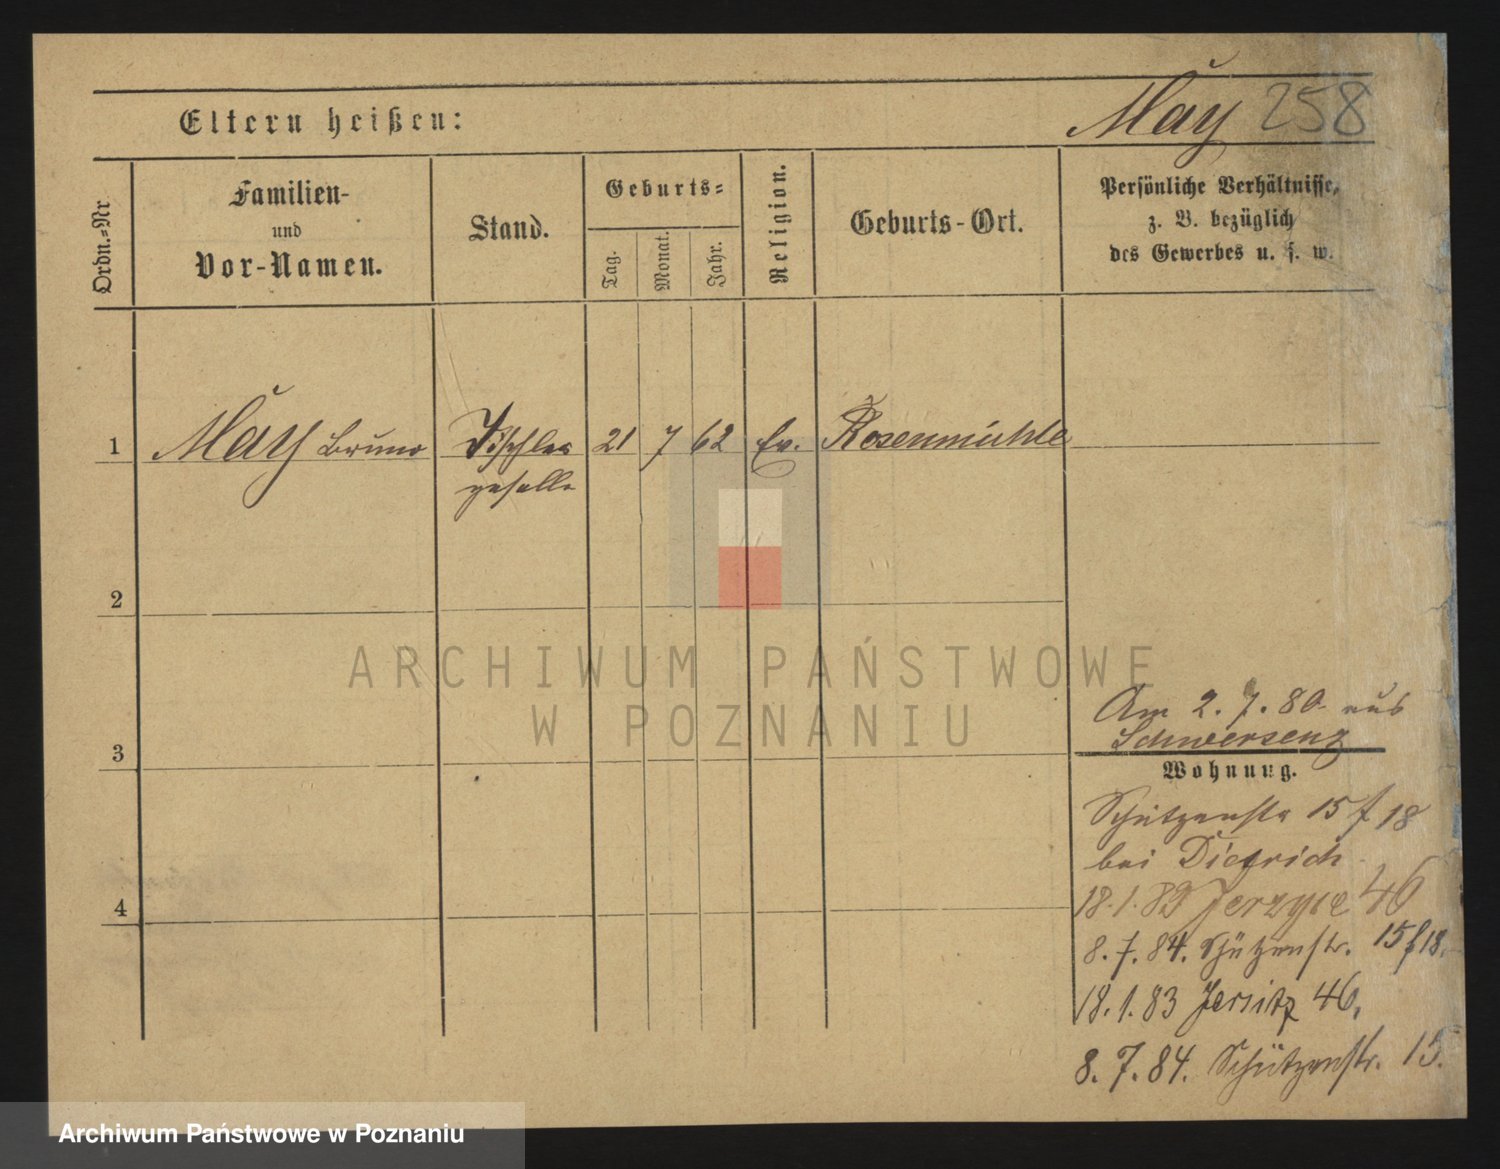 Eltern heißen:
May 258
Ordn.-Nr
Familien-
und
Vor-Namen.
Stand.
Geburts-
Tag.
Monat.
Jahr.
Religion.
Geburts-Ort.
Persönliche Verhältnisse,
z. B. bezüglich
des Gewerbes u. s. w.
1 May Bruno Tischler 21 7 62 Ev. Rosenmühle
geselle
2
3
4
Am 2. 7. 80 aus
Schwersenz
Wohnung.
Schützenstr 15 / 18
bei Dietrich
18.1.83 Jerzyce 46
8. 7. 84. Schützenstr. 15/18.
18. 1. 83 Jersitz 46.
8. 7. 84. Schützenstr. 15.
ARCHIWUM PAŃSTWOWE
W POZNANIU
Archiwum Państwowe w Poznaniu